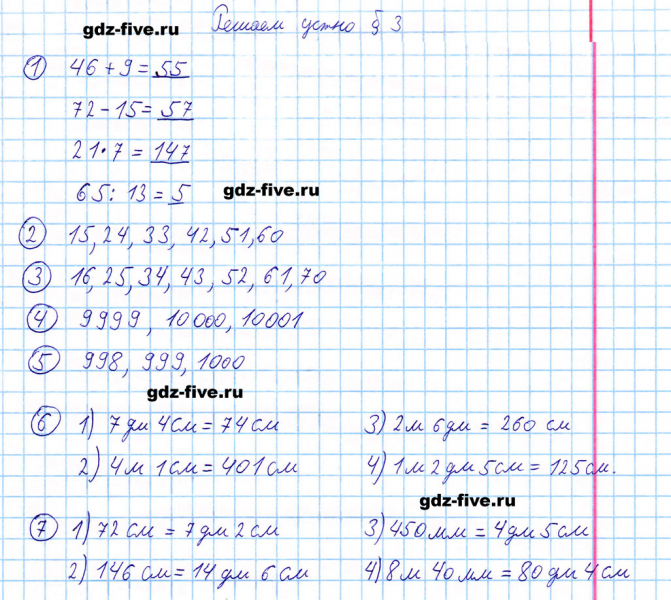 gdz-five.ru
Решаем устно § 3
1 46 + 9 = 55
72 - 15 = 57
21 • 7 = 147
65 : 13 = 5
gdz-five.ru
2 15, 24, 33, 42, 51, 60
3 16, 25, 34, 43, 52, 61, 70
4 9999, 10000, 10001
5 998, 999, 1000
gdz-five.ru
6 1) 7 дм 4 см = 74 см
3) 2 м 6 дм = 260 см
2) 4 м 1 см = 401 см
4) 1 м 2 дм 5 см = 125 см.
gdz-five.ru
7 1) 72 см = 7 дм 2 см
3) 450 мм = 4 дм 5 см
2) 146 см = 14 дм 6 см
4) 8 м 40 мм = 80 дм 4 см